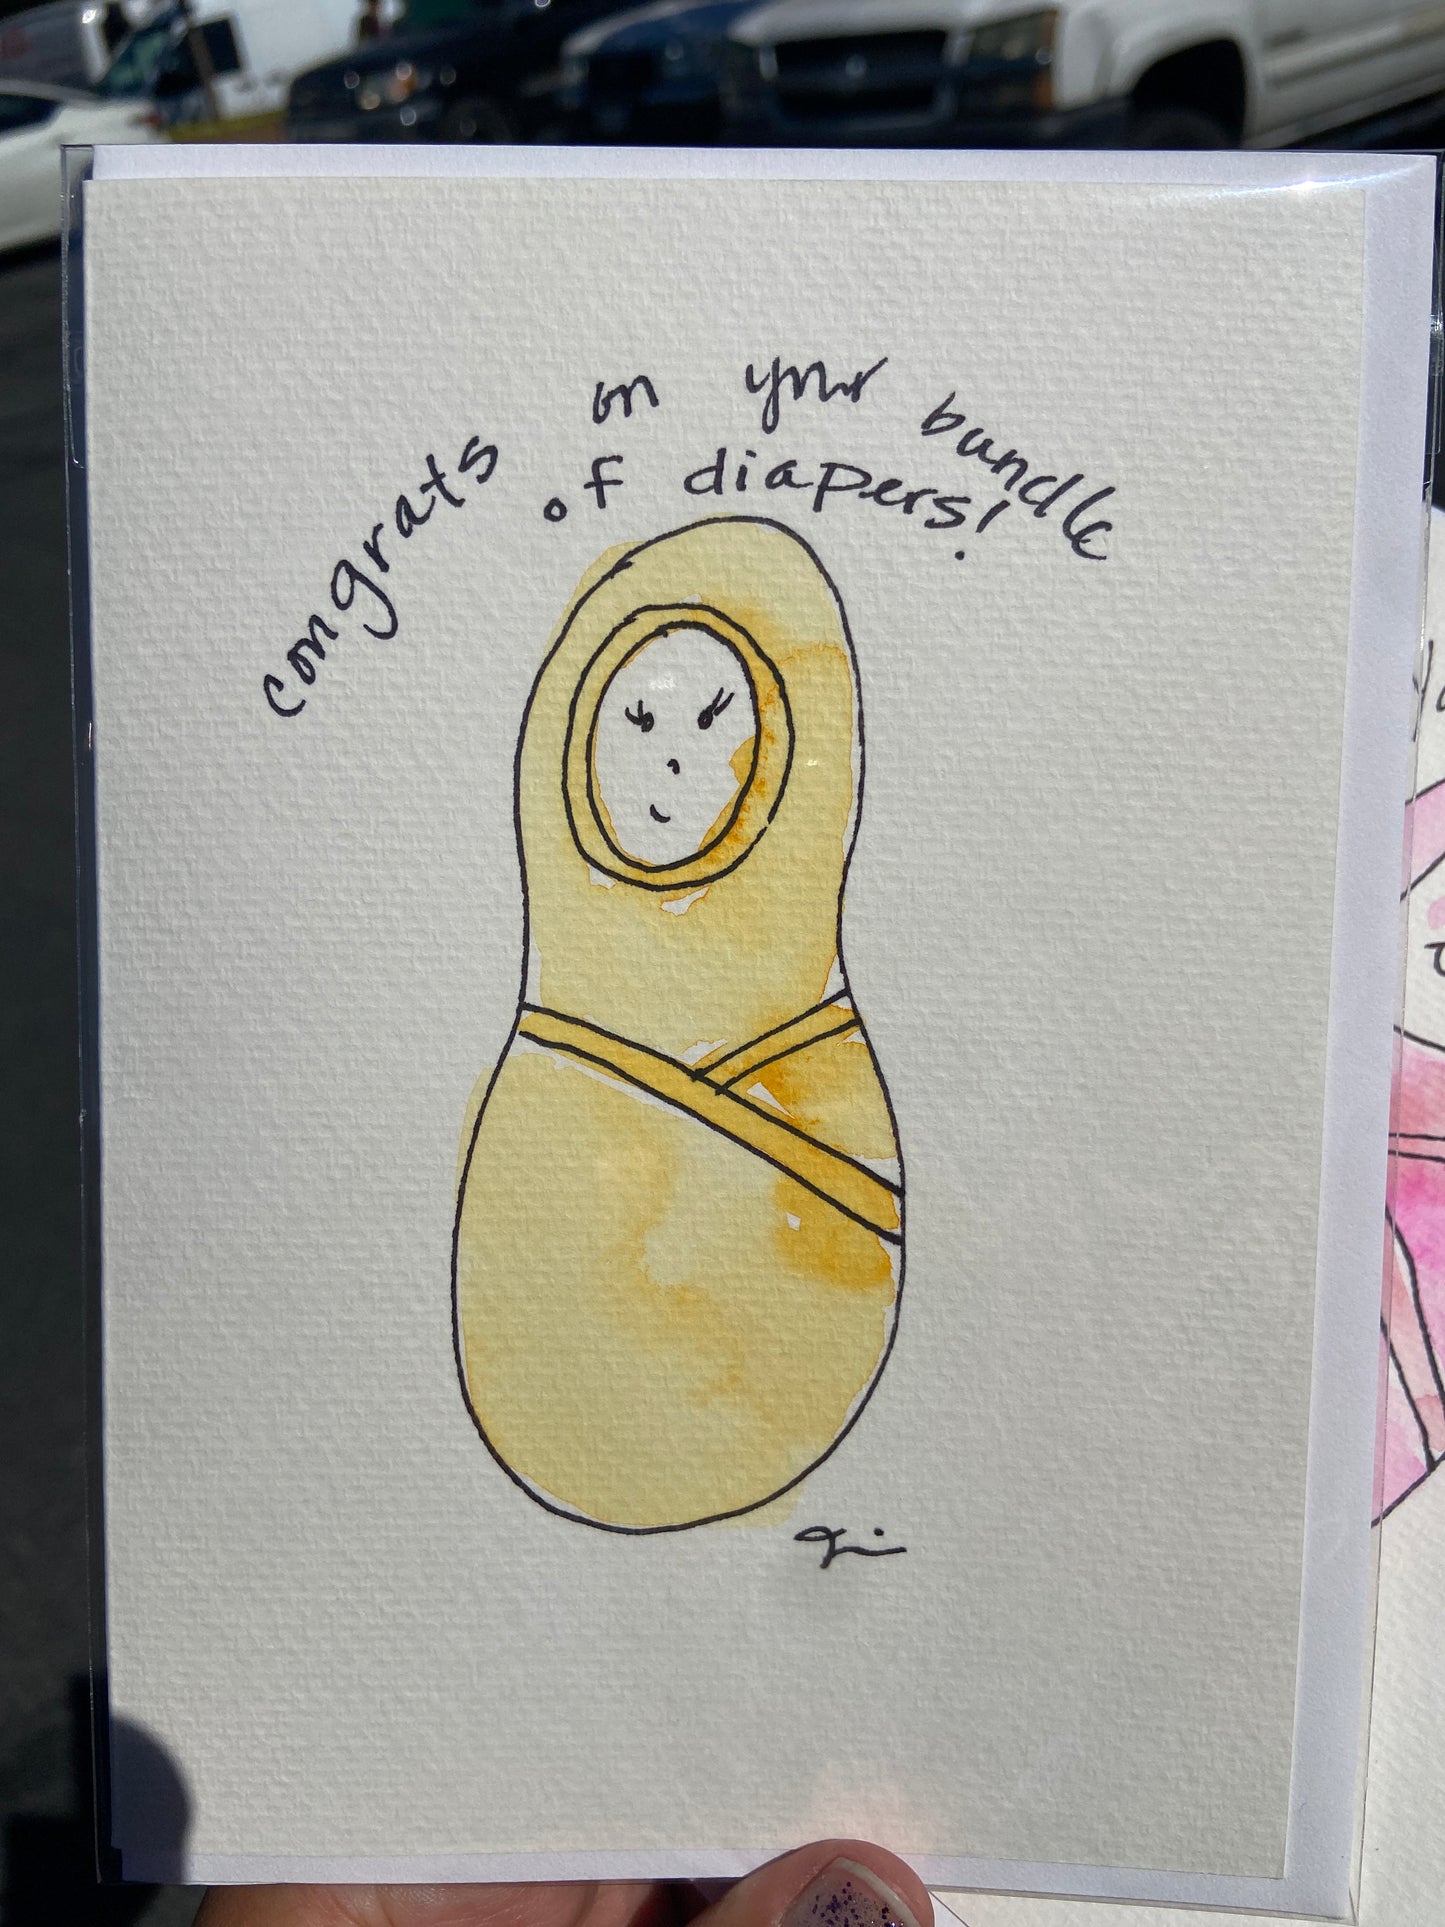 congrats on your bundle
of diapers!